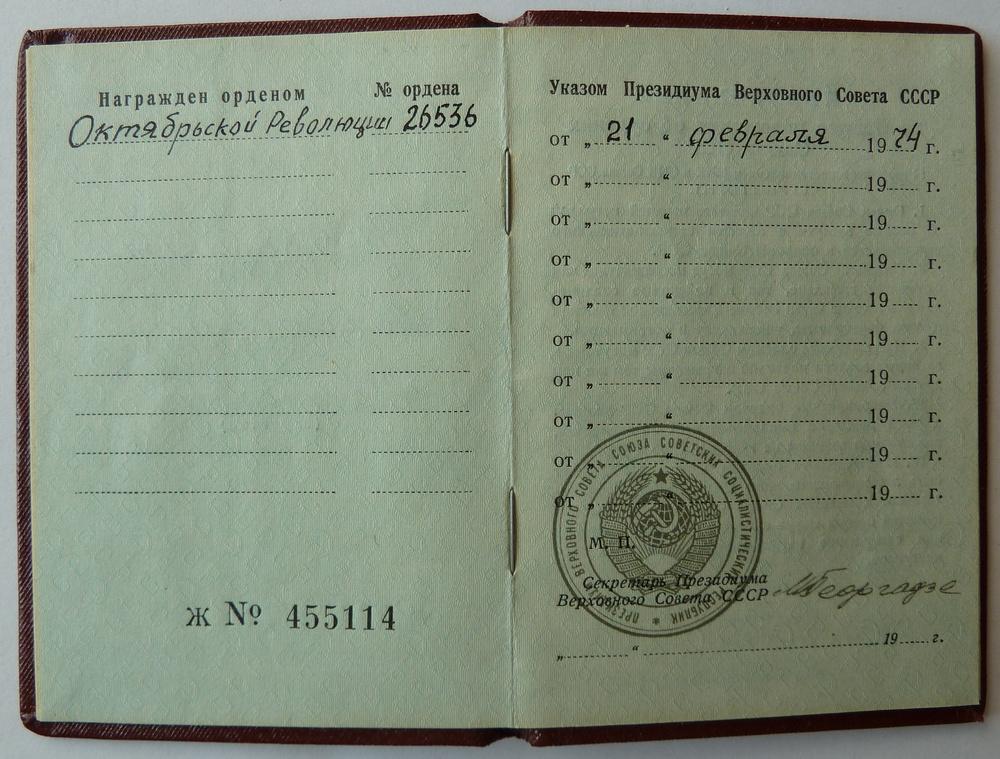 Награжден орденом № ордена
Октябрьской Революции 26536
Ж № 455114
Указом Президиума Верховного Совета СССР
от „ 21 “ февраля 1974 г.
от „ “ 19 г.
от „ “ 19 г.
от „ “ 19 г.
от „ “ 19 г.
от „ “ 19 г.
от „ “ 19 г.
от „ “ 19 г.
от „ “ 19 г.
от „ “ 19 г.
ПРЕЗИДИУМ ВЕРХОВНОГО СОВЕТА СОЮЗА СОВЕТСКИХ СОЦИАЛИСТИЧЕСКИХ РЕСПУБЛИК
М. П.
Секретарь Президиума
Верховного Совета СССР МГеоргадзе
„ “ 19 г.